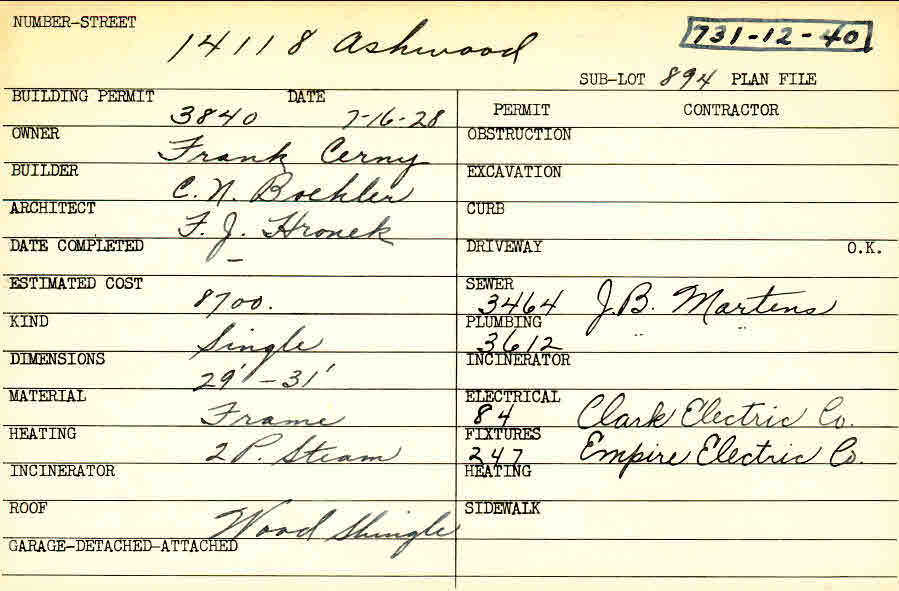 NUMBER-STREET
14118 Ashwood
731-12-40
SUB-LOT 894 PLAN FILE
BUILDING PERMIT DATE
3840 7-16-28
OWNER
Frank Cerny
BUILDER
C. N. Boehler
ARCHITECT
F. J. Hronek
DATE COMPLETED
–
ESTIMATED COST
8700.
KIND
Single
DIMENSIONS
29' - 31'
MATERIAL
Frame
HEATING
2 P. Steam
INCINERATOR
ROOF
Wood Shingle
GARAGE-DETACHED-ATTACHED
PERMIT CONTRACTOR
OBSTRUCTION
EXCAVATION
CURB
DRIVEWAY O.K.
SEWER
3464 J.B. Martens
PLUMBING
3612 " "
INCINERATOR
ELECTRICAL
84 Clark Electric Co.
FIXTURES
247 Empire Electric Co.
HEATING
SIDEWALK